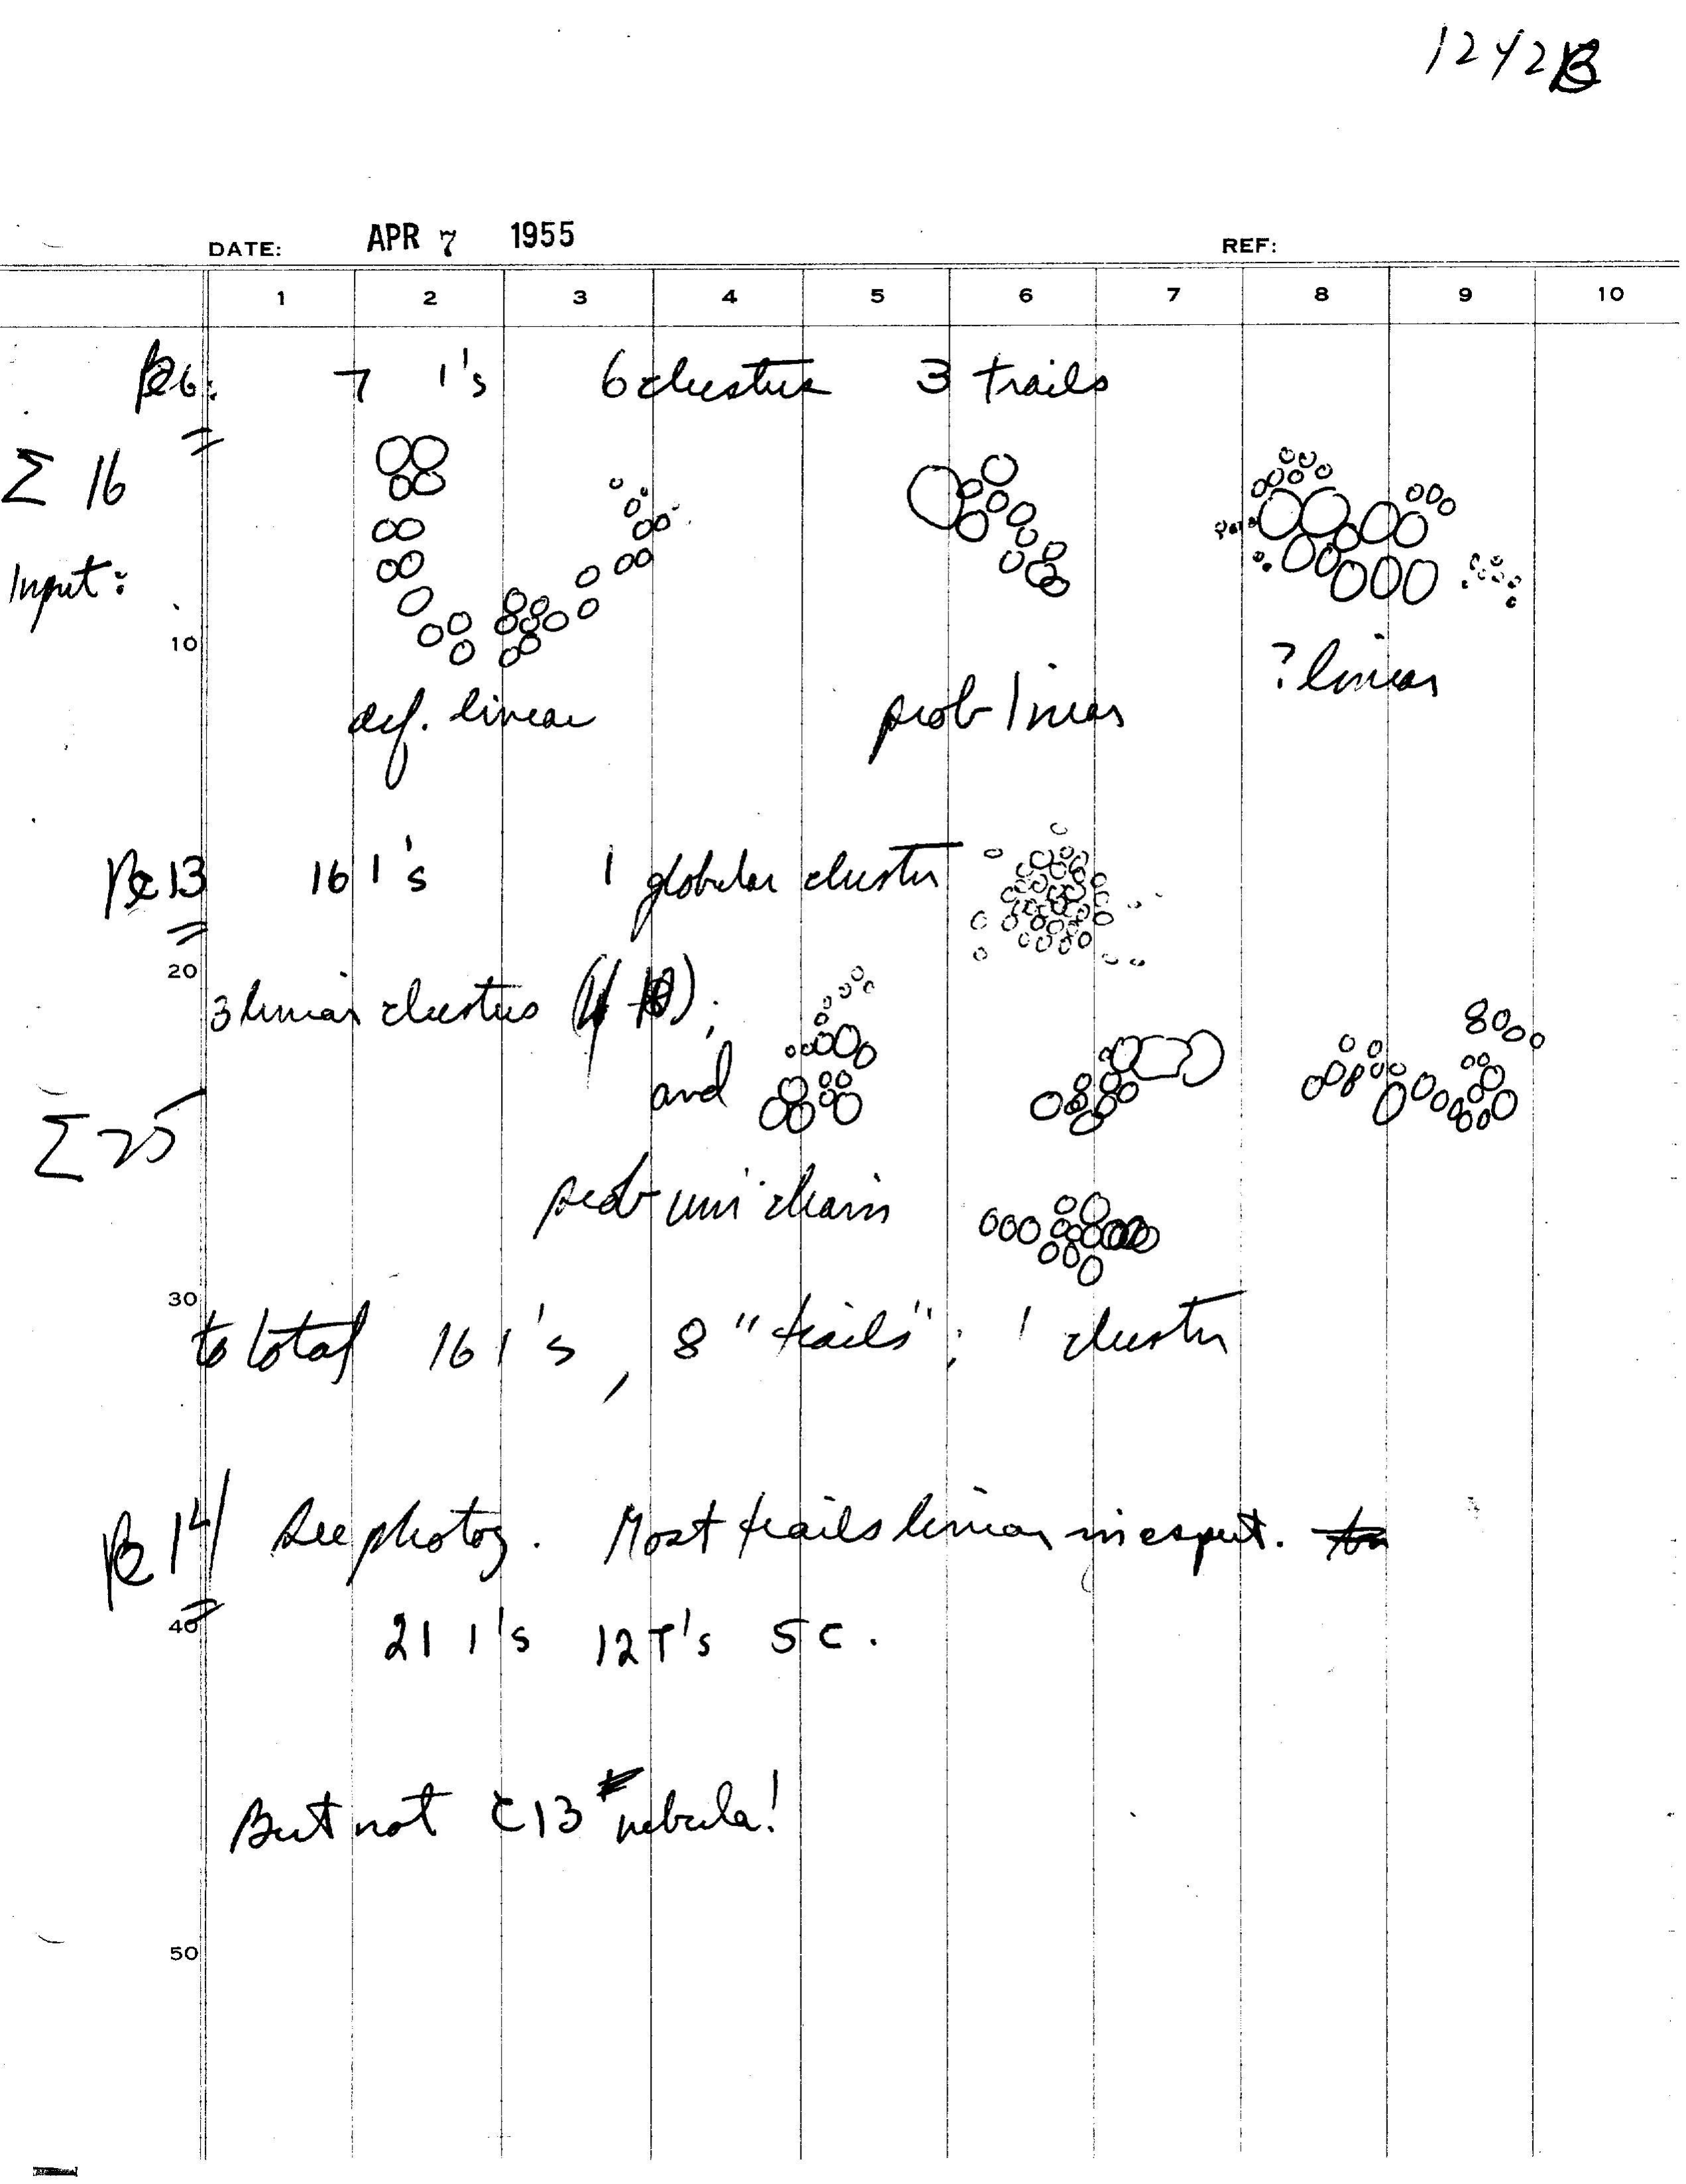 1242B
DATE: APR 7 1955 REF:
1 2 3 4 5 6 7 8 9 10
6: 7 1's 6 clusters 3 trails
Σ 16
Input:
10
? linear
def. linear prob linear
13 16 1's 1 globular cluster
20
3 linear clusters
and
Σ 25
prob uni chain
30
to total 16 1's, 8 "trails"; 1 cluster
14 See photog. Most trails linear in
40
21 1's 12T's 5 C.
But not C13 nebula!
50